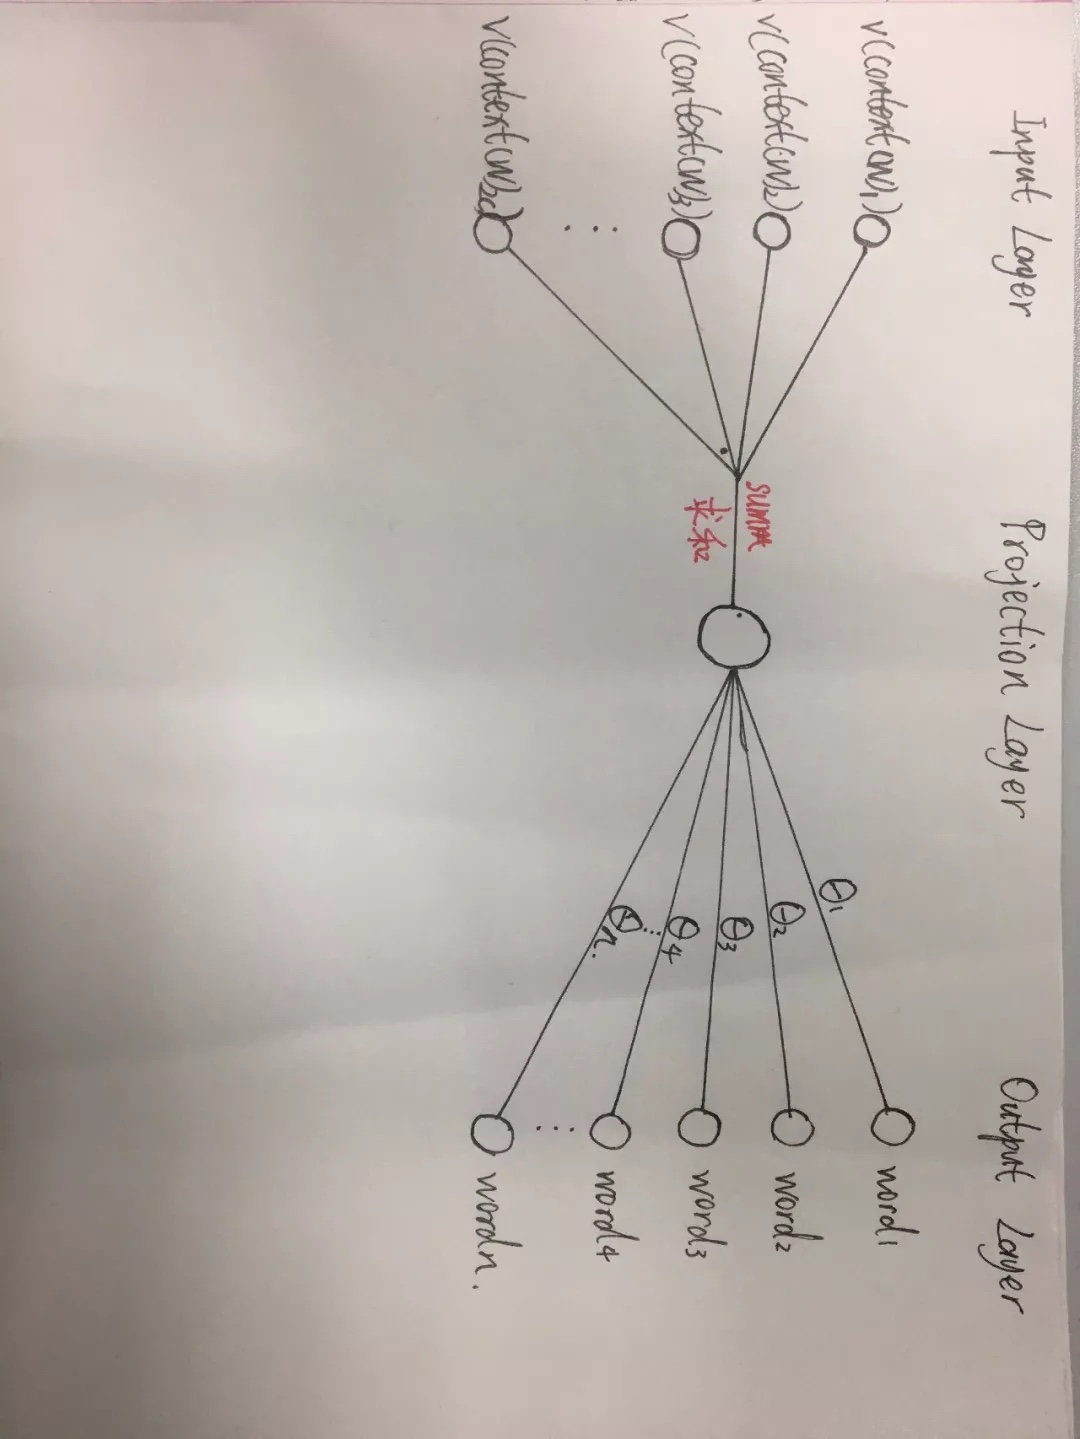 Input Layer
Projection Layer
Output Layer
v(context(w)₁)
v(context(w)₂)
v(context(w)₃)
⋮
v(context(w)₂c)
求和
θ₁
θ₂
θ₃
θ₄
⋮
θn.
word₁
word₂
word₃
word₄
⋮
wordn.